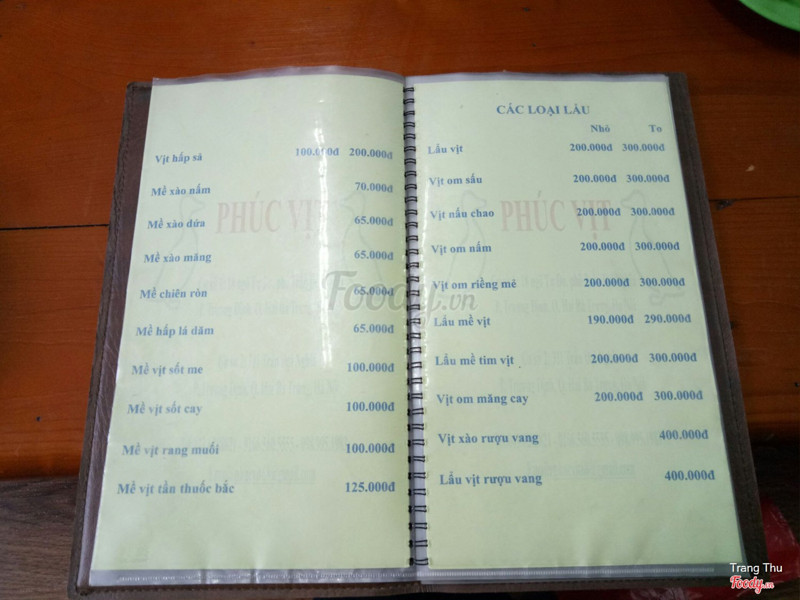 Vịt hấp sả 100.000đ 200.000đ
Mề xào nấm 70.000đ
Mề xào dứa 65.000đ
Mề xào măng 65.000đ
Mề chiên ròn 65.000đ
Mề hấp lá dăm 65.000đ
Mề vịt sốt me 100.000đ
Mề vịt sốt cay 100.000đ
Mề vịt rang muối 100.000đ
Mề vịt tần thuốc bắc 125.000đ
PHÚC VỊT
CÁC LOẠI LẨU
Nhỏ To
Lẩu vịt 200.000đ 300.000đ
Vịt om sấu 200.000đ 300.000đ
Vịt nấu chao 200.000đ 300.000đ
Vịt om nấm 200.000đ 300.000đ
Vịt om riềng mẻ 200.000đ 300.000đ
Lẩu mề vịt 190.000đ 290.000đ
Lẩu mề tim vịt 200.000đ 300.000đ
Vịt om măng cay 200.000đ 300.000đ
Vịt xào rượu vang 400.000đ
Lẩu vịt rượu vang 400.000đ
PHÚC VỊT
Foody.vn
Trang Thu
Foody.vn